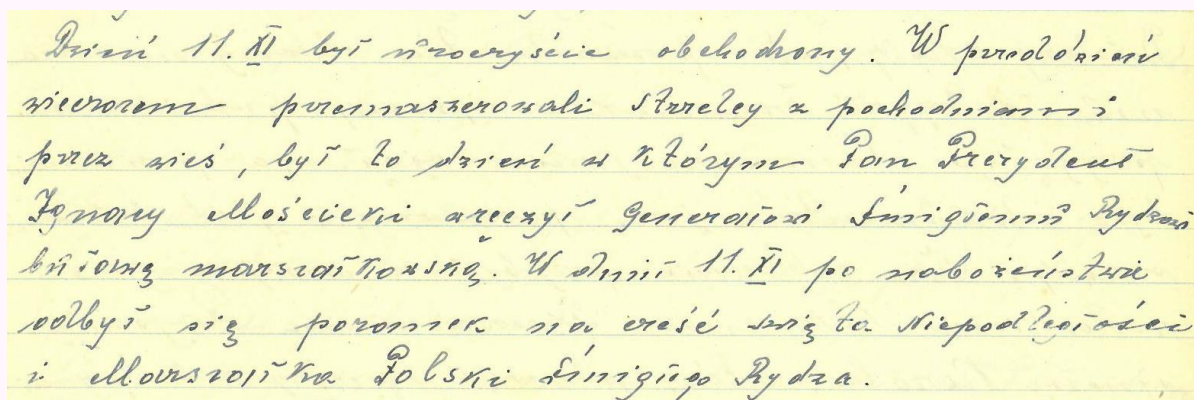 Dzień 11. XI był uroczyście obchodzony. W przeddzień
wieczorem przemaszerowali strzelcy z pochodniami
przez wieś, był to dzień w którym Pan Prezydent
Ignacy Mościcki wręczył Generałowi Śmigłemu Rydzowi
buławę marszałkowską. W dniu 11. XI po nabożeństwie
odbył się poranek na cześć święta Niepodległości
i Marszałka Polski Śmigłego Rydza.